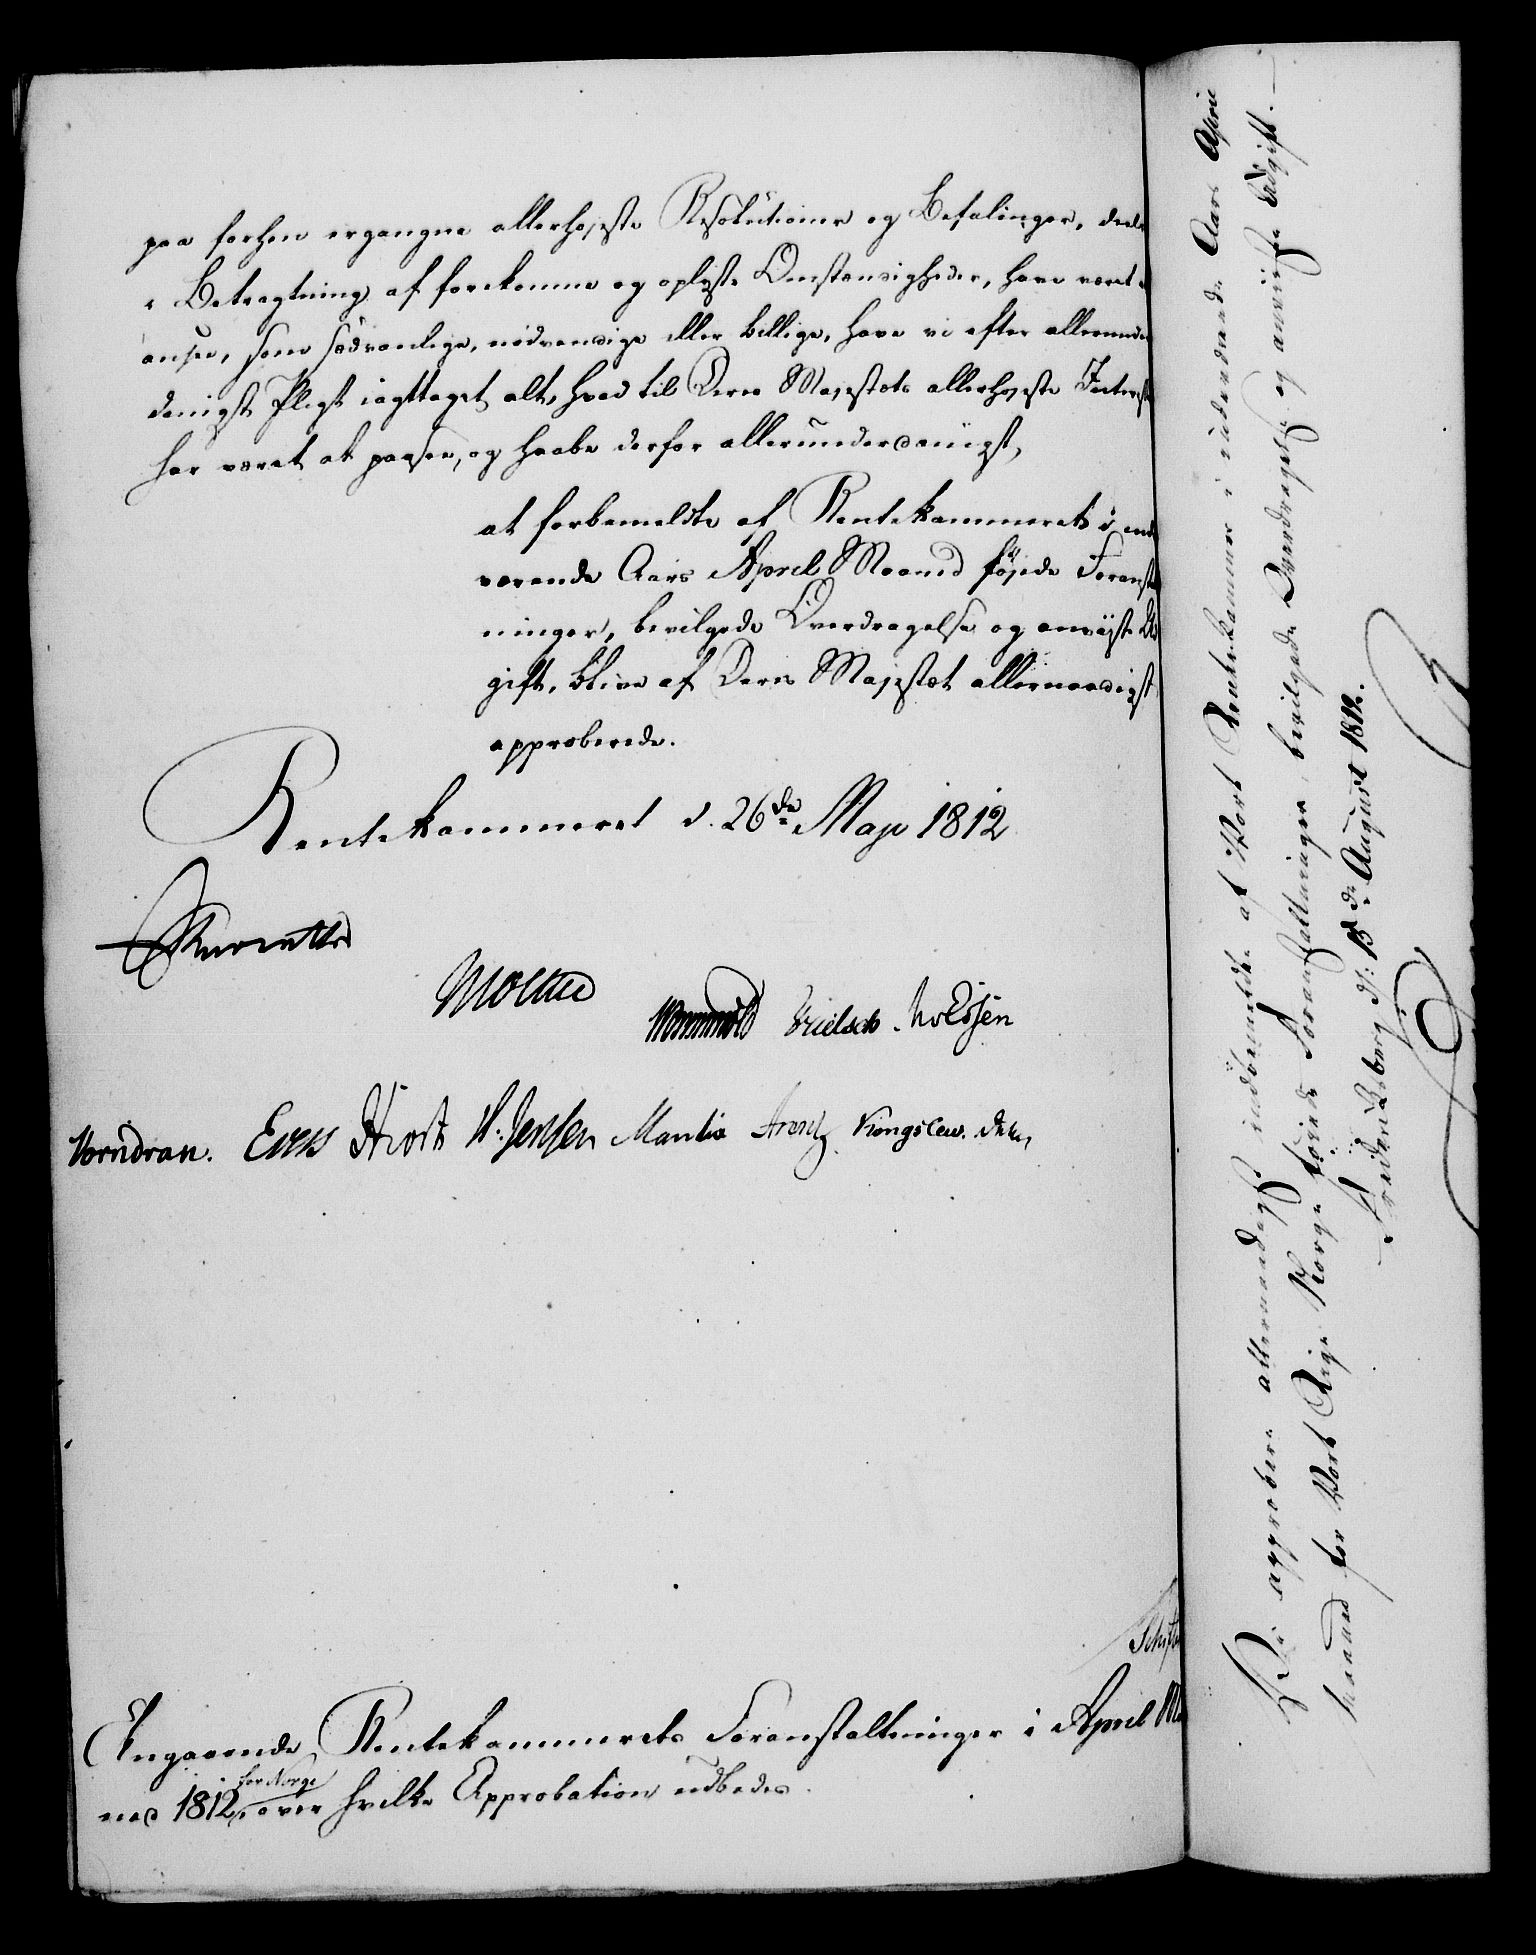 paa forhen ergangne allerhøjeste Resolutioner og Befalinger, deels
i Betragtning af forekomne og oplyste Omstændigheder, have været at
ansee, som sædvanlige, nødvendige eller billige, have vi efter allerunder
danigst Pligt iagttaget alt, hvad til Deres Majestæts allerhøjeste Interesse
har været at paasee, og haabe derfor allerunderdanigst,
at forbemeldte af Rentekammeret i inde
værende Aars April Maaned føjede Foranstalt
ninger, bevilgede Overdragelse og anviiste Ud
gift, blive af Deres Majestæt allernaadigst
approberede.
Rentekammeret d. 26de May 1812
Moltke
Vormdran. Hiort H: Jensen Manthe Arentz
Schifter
Angaaende Rentekammerets Foranstaltninger i April Maa
ned 1812, for Norge over hvilke Approbation udbedes.
Vi approbere allernaadigst indbemeldte af Vort Rentekammer i indeværende Aars April
Maaned for Vort Rige Norge føiede Foranstaltninger, bevilgede Overdragelse og anviiste Udgift.
Fredensborg d: 13de August 1812.